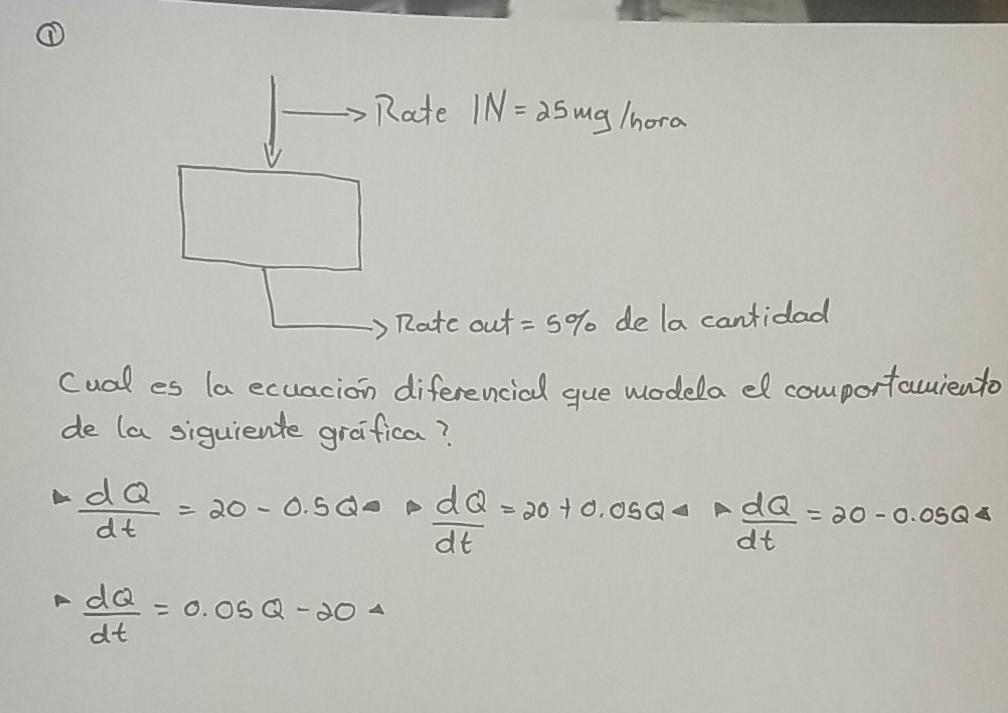 ①
Rate IN = 25mg/hora
Rate out = 5% de la cantidad
Cual es la ecuación diferencial que modela el comportamiento
de la siguiente gráfica?
▸ dQ/dt = 20 - 0.5Q ◂ ▸ dQ/dt = 20 + 0.05Q ◂ ▸ dQ/dt = 20 - 0.05Q ◂
▸ dQ/dt = 0.05Q - 20 ◂